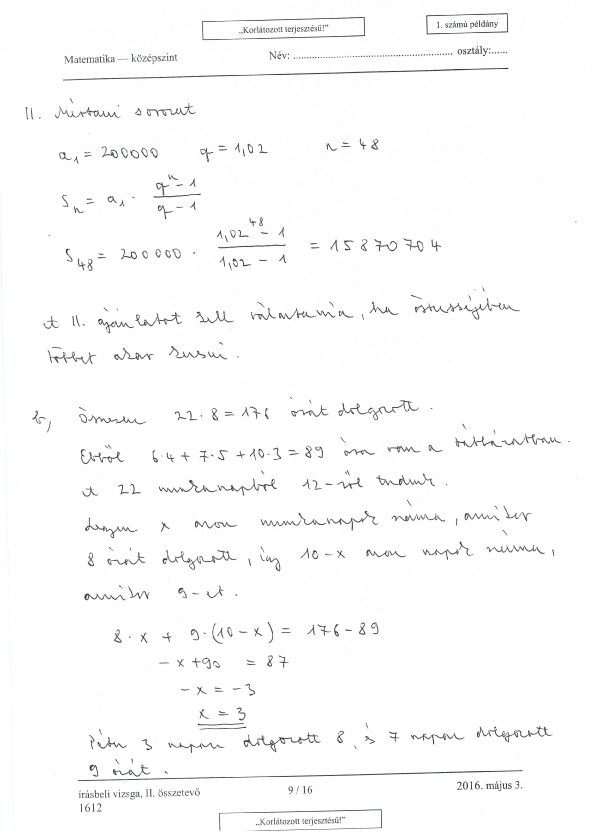 „Korlátozott terjesztésű!”
1. számú példány
Matematika — középszint
Név: ........................................................ osztály:......
II. Mértani sorozat
a₁ = 200000 q = 1,02 n = 48
Sₙ = a₁ · (qⁿ - 1)/(q - 1)
S₄₈ = 200000 · (1,02⁴⁸ - 1)/(1,02 - 1) = 15870704
A II. ajánlatot kell választania, ha összességében
többet akar keresni.
b, Összesen 22·8 = 176 órát dolgozott.
Ebből 6·4 + 7·5 + 10·3 = 89 óra van a táblázatban.
A 22 munkanapból 12-ről tudunk.
Legyen x azon munkanapok száma, amikor
8 órát dolgozott, így 10-x azon napok száma,
amikor 9-et.
8·x + 9·(10-x) = 176-89
-x+90 = 87
-x = -3
x = 3
Péter 3 napon dolgozott 8, és 7 napon dolgozott
9 órát.
írásbeli vizsga, II. összetevő
9 / 16
2016. május 3.
1612
„Korlátozott terjesztésű!”